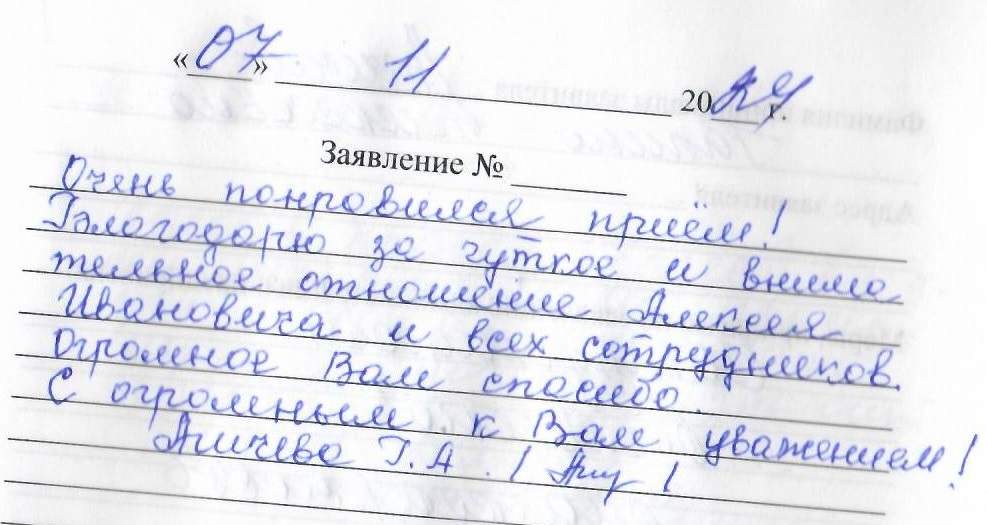 «07» 11 2024 г.
Заявление №
Очень понравился приём!
Благодарю за чуткое и внима
тельное отношение Алексея
Ивановича и всех сотрудников.
Огромное Вам спасибо.
С огромным к Вам уважением!
Г.А.